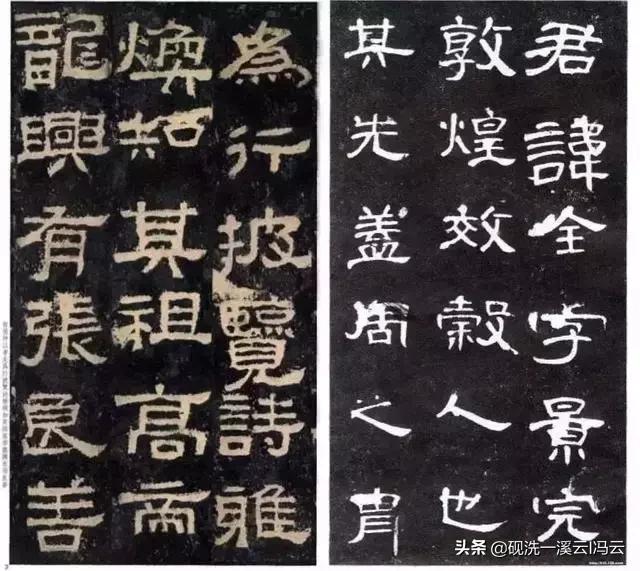 為行披覽詩雅
煥知其祖高帝
龍興有張良善
君諱全字景完
敦煌效穀人也
其先蓋周之胄
头条 @砚洗一溪云I冯云